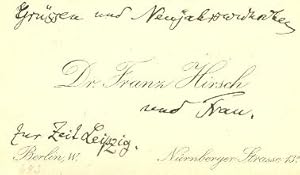 Grüssen und Neujahrswünschen
Dr. Franz Hirsch
und Frau.
zur Zeit Leipzig.
Berlin, W.
Nürnberger Strasse 13